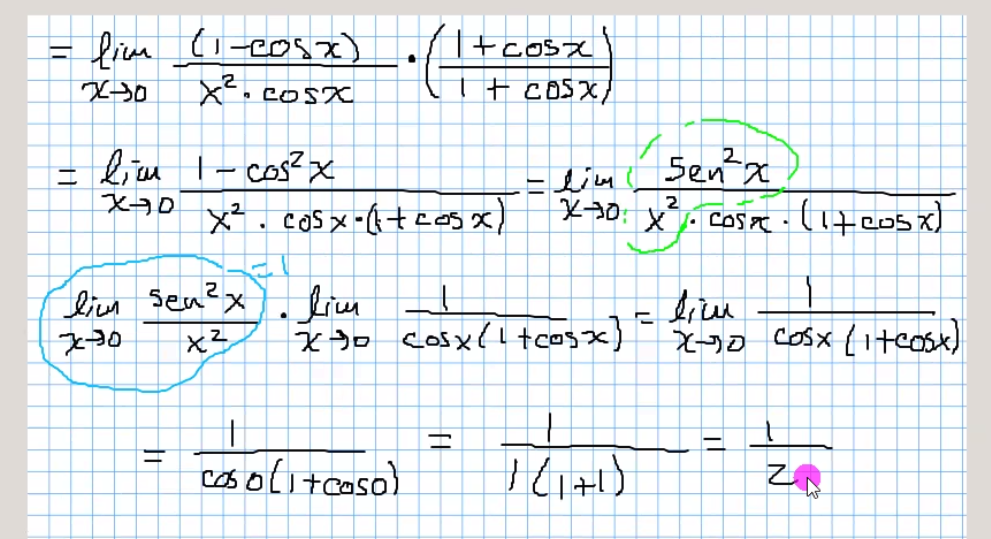 = lim x→0 (1-cosx)/(x²·cosx) · ((1+cosx)/(1+cosx))
= lim x→0 (1-cos²x)/(x²·cosx·(1+cosx)) = lim x→0 (sen²x)/(x²·cosx·(1+cosx))
lim x→0 (sen²x)/(x²) =1 · lim x→0 1/(cosx(1+cosx)) = lim x→0 1/(cosx(1+cosx))
= 1/(cos0(1+cos0)) = 1/(1(1+1)) = 1/2